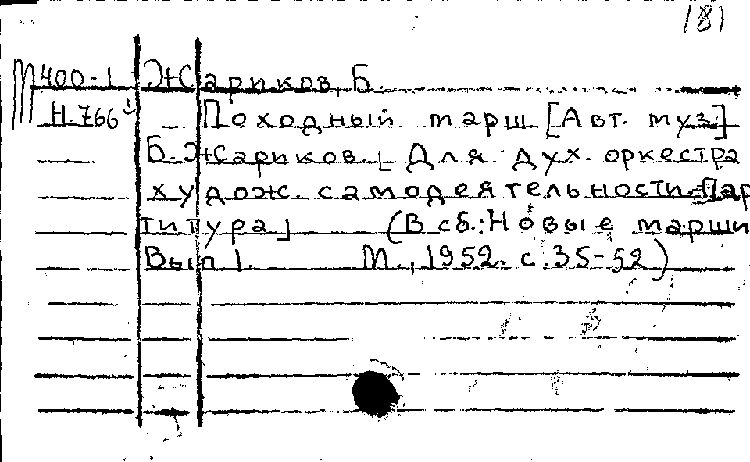 181
М400-1 Жариков, Б.
Н.766 Походный марш [Авт. муз.]
Б. Жариков. [Для дух. оркестра
худож. самодеятельности. Пар-
титура] (В сб.: Новые марши
Вып 1. М., 1952. с. 35-52)